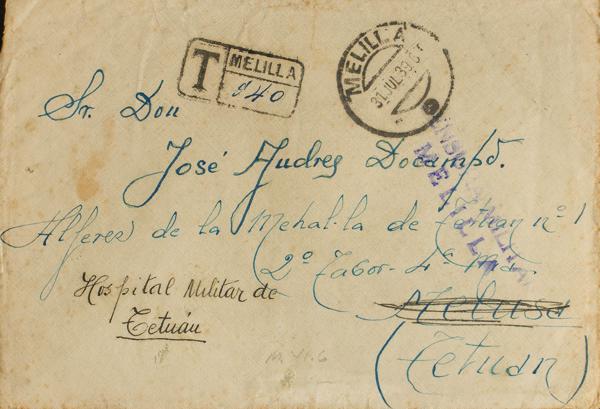 T MELILLA
'40
MELILLA
31 JUL 39
CENSURA MILITAR
MELILLA
Sr. Don
José Andres Docampo.
Alferez de la Mehal·la de Tetuan nº 1
2º Tabor - 4ª Mía
Hospital Militar de
Tetuán
(Tetuan)
M 41.6